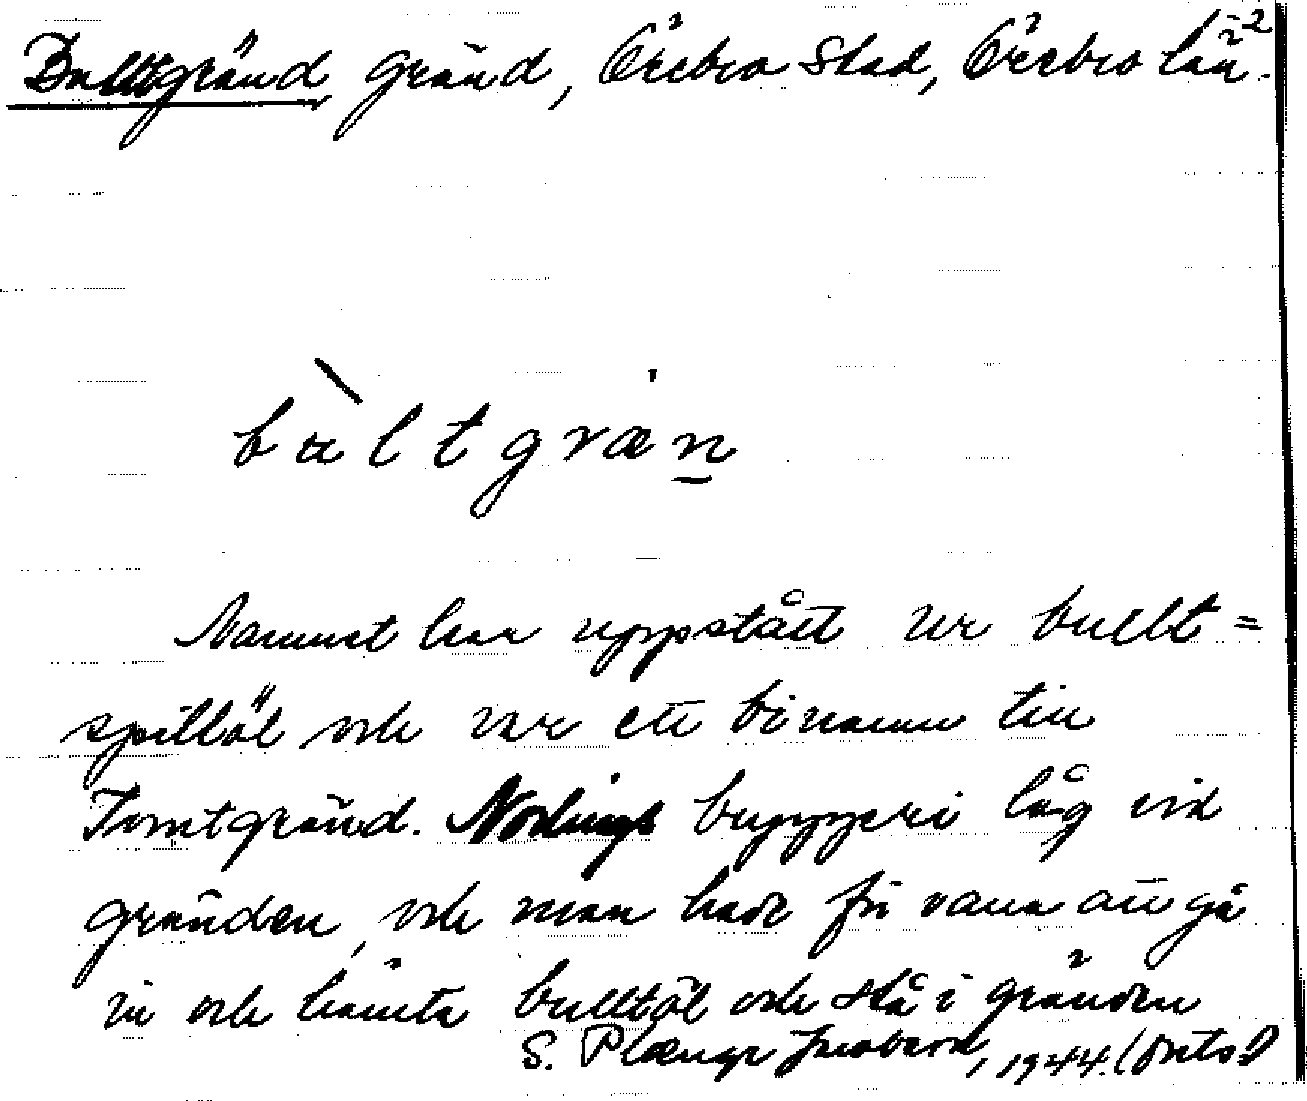 Bulltgränd, gränd, Örebro Stad, Örebro län.
bultgræn
Namnet har uppstått ur bullt=
spillöl och var ett binamn till
Tomtgränd. Nordings bryggeri låg vid
gränden, och man hade för vana att gå
in och hämta bulltöl och stå i gränden
S. Jacobson, 1944.